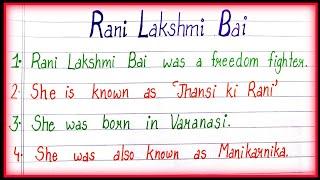 Rani Lakshmi Bai
1. Rani Lakshmi Bai was a freedom fighter.
2. She is known as 'Jhansi ki Rani'
3. She was born in Varanasi.
4. She was also known as Manikarnika.